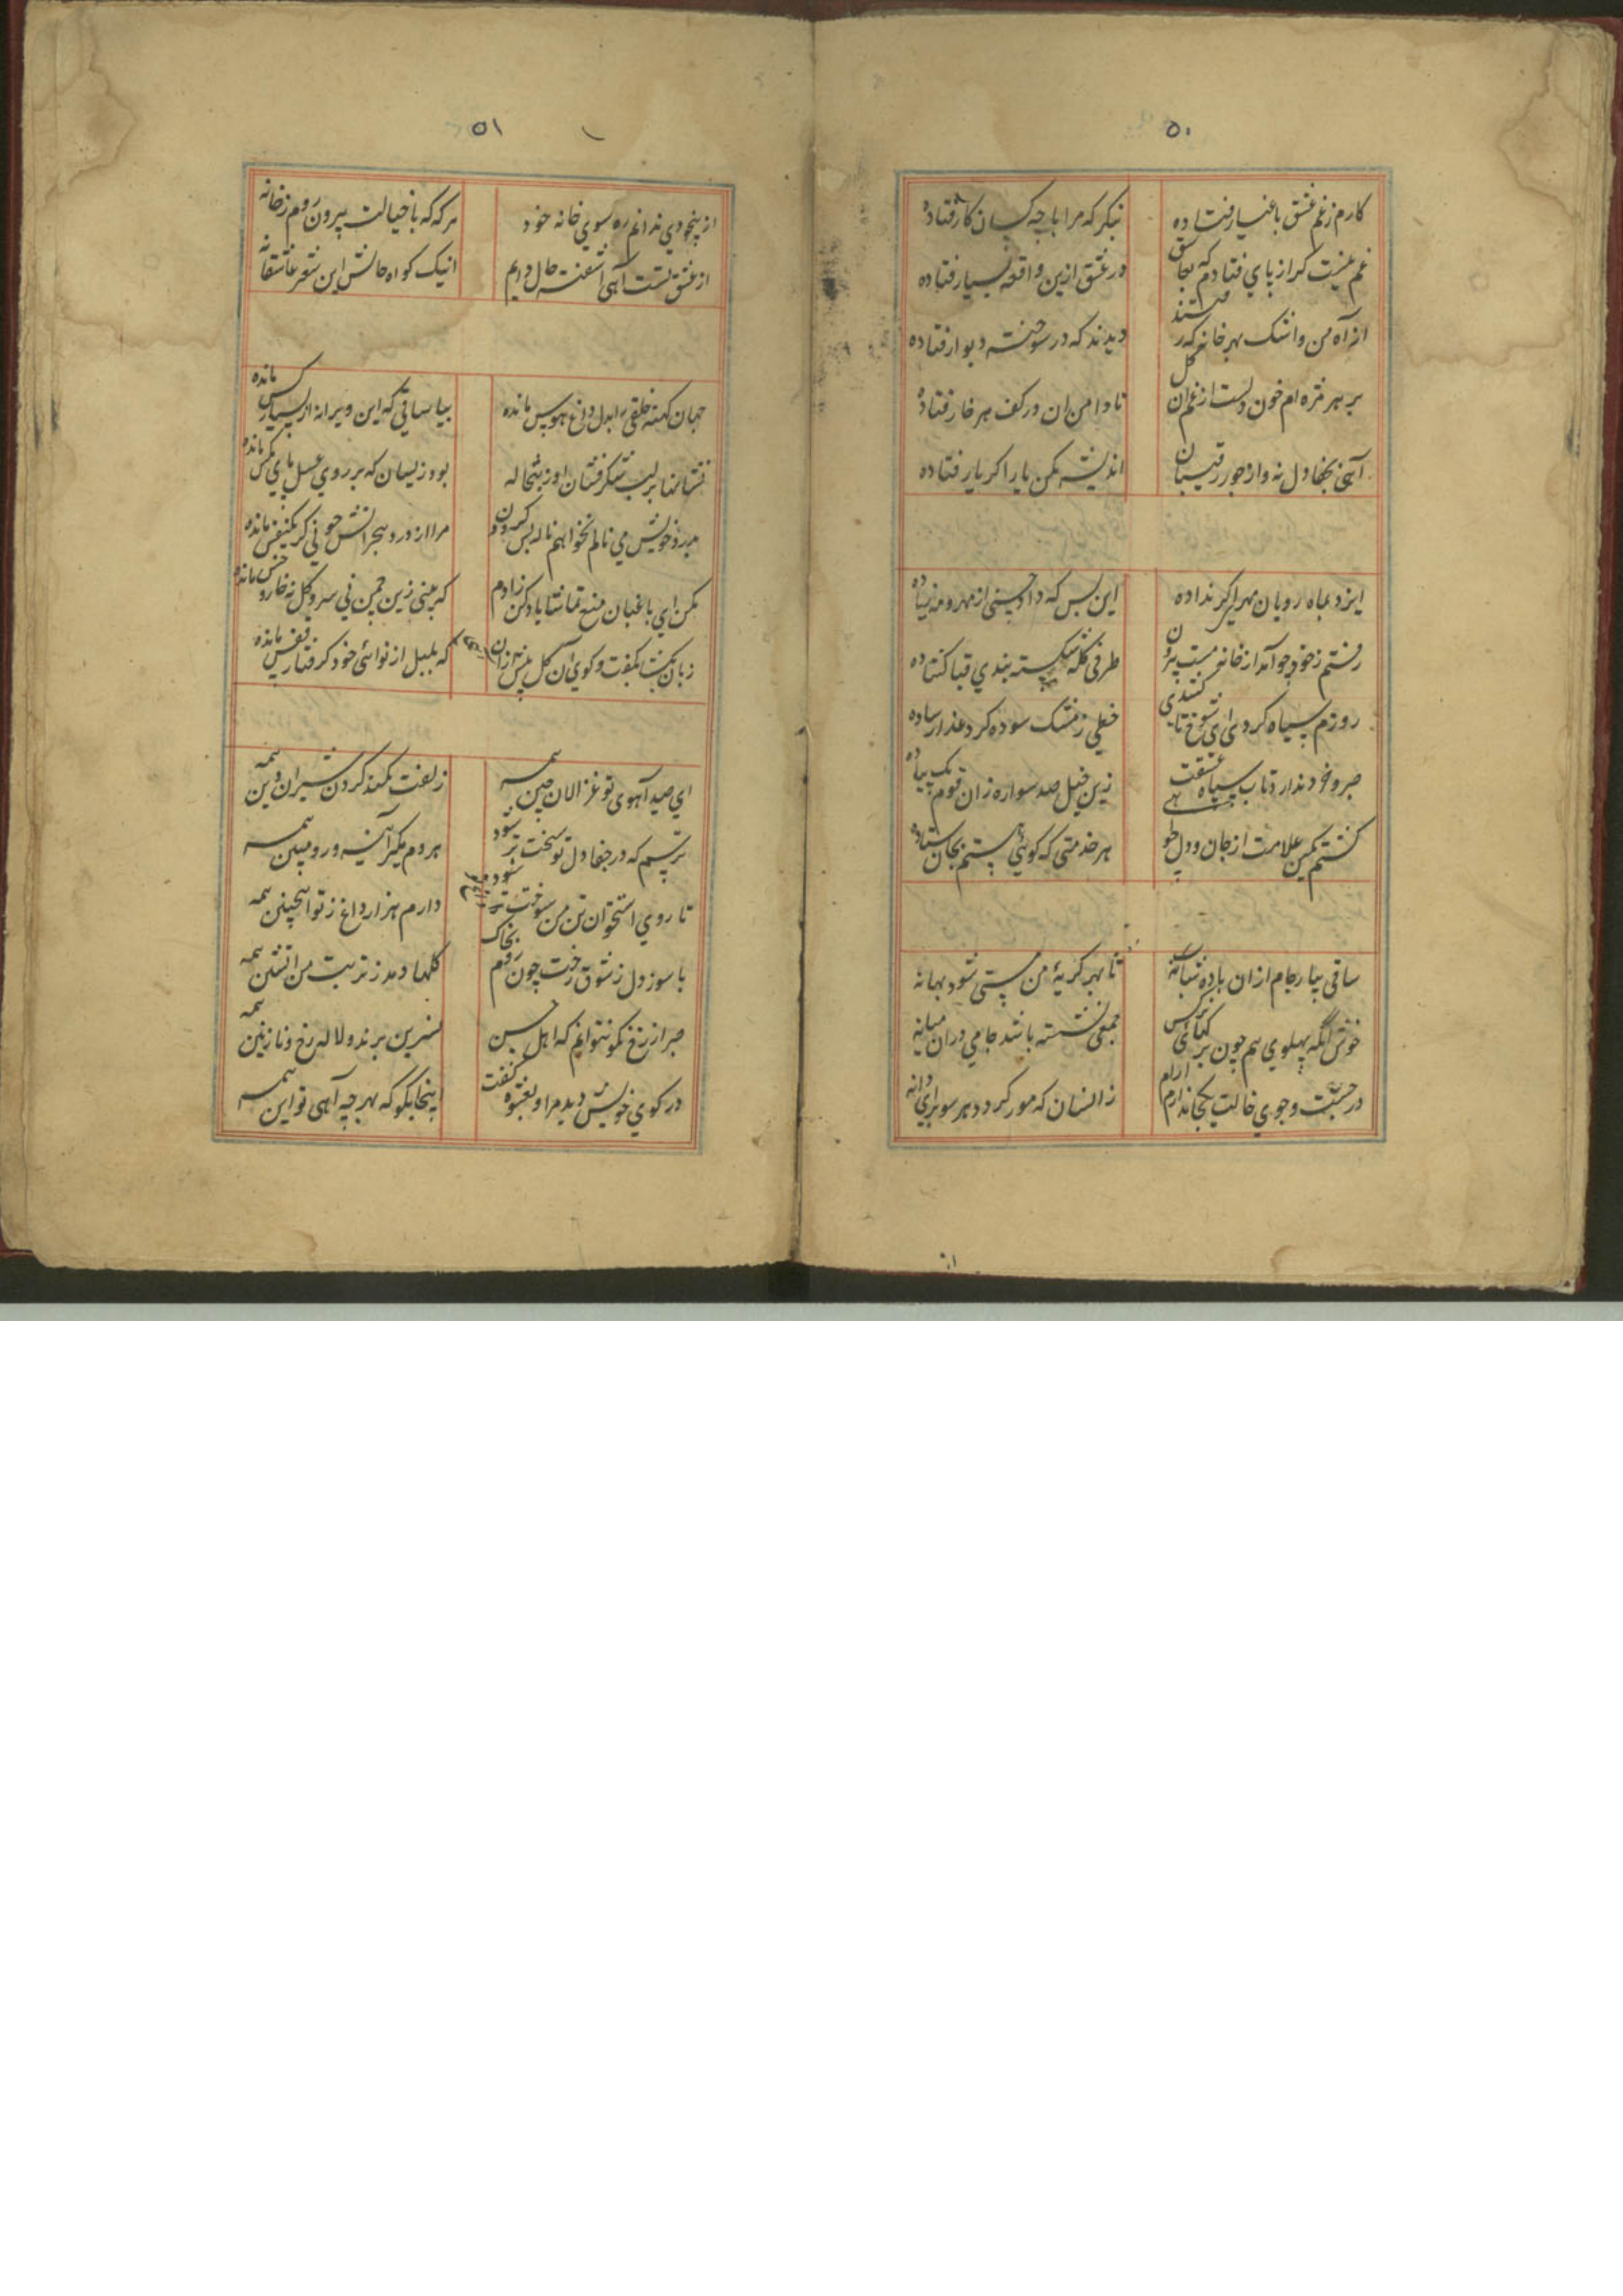 ۵۰
کارم ز غم عشق باغیار فتاده
بنگر که مرا با چه کسان کار فتاده
غم نیست کر از پای فتادم که بجا عشق
در عشق ازین واقعه بسیار فتاده
از آه من و اشک بهر خانه که رفتند
دیدند که در سوخته و دیوار فتاده
بر هر مژه ام خون دلست از غم ان کل
تا دامن ان در کف هر خار فتاده
آهی بجفا دل نه و از جور رقیبان
اندیشه مکن یار اکر یار فتاده
ایزد بماه رویان مهر اکر نداده
این بس که داد حسنی از مهر و مه زیاده
رفتم ز خود چو آمد از خانه مست بیرون
طرفی کله شکسته بندی قبا کشاده
روزم سیاه کردی ای شوخ تا کشیدی
خطی ز مشک سوده کرد عذار ساده
صبر و خرد ندارد تاب سپاه عشقت
زین خیل صد سواره زان قوم یک پیاده
کشتم کمین غلامت از جان و دل
هر خدمتی که کوئی هستم بجان ستاده
ساقی بیار جام از ان باده شبانه
تا بهر کریهٔ من مستی شود بهانه
خوش آنکه پهلوی هم چون بر کنار نرکس
جمعی نشسته باشد جامی در ان میانه
در جست و جوی خالت یکجا ندارم ارام
زانسان که مور کردد هر سو برای دانه
از
۵۱
از بیخودی ندانم ره سوی خانه خود
هر که که با خیالت بیرون روم ز خانه
از عشق تست آهی آشفته حال دایم
اینک کواه حالش این شعر عاشقانه
جهان کهنه خلقی را بدل داغ هوس مانده
بیا ساقی که این ویرانه از بسیار کس مانده
نشانها بر لب شکر فشان او ز تبخاله
بود زینسان که بر روی عسل پای مکس مانده
بدرد خویش می نالم نخواهم ناله بس کردن
مرا از درد هجرانش چو نی کر یکنفس مانده
مکن ای باغبان منع تماشا یاد کن زادم
که بینی زین چمن نی سرو و کل نه خار و خس مانده
زبان بست آهی از کفت و کوی ان کل پیش ازان
که بلبل از نوائی خود کرفتار قفس مانده
ای صید آهوی تو غزالان چین همه
زلفت کمند کردن شیران دین همه
ترسم که در جفا دل تو سخت تر شود
هر دم مکیر آینه و رو مبین همه
تا روی استخوان تن من سوخت
دارم هزار داغ ز تو اینچنین همه
با سوز دل ز شوق رخت چون روم بخاک
کلها دمد ز تربت من اتشین همه
صبر از رخ نکو نتوانم که اهل حسن
نسرین برند و لاله رخ و نازنین همه
در کوی خویش دید مرا و بغبوه کفت
اینجا بکو که بهر چه آهی تو این همه